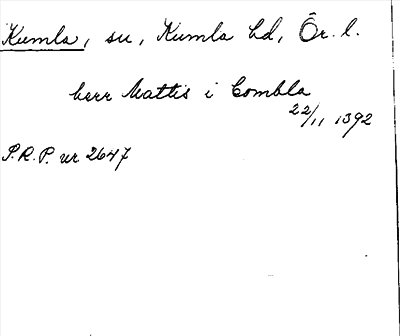 Kumla, su, Kumla hd, Ör. l.
herr Mattis i Combla
22/11 1392
P.R.P. nr 2647